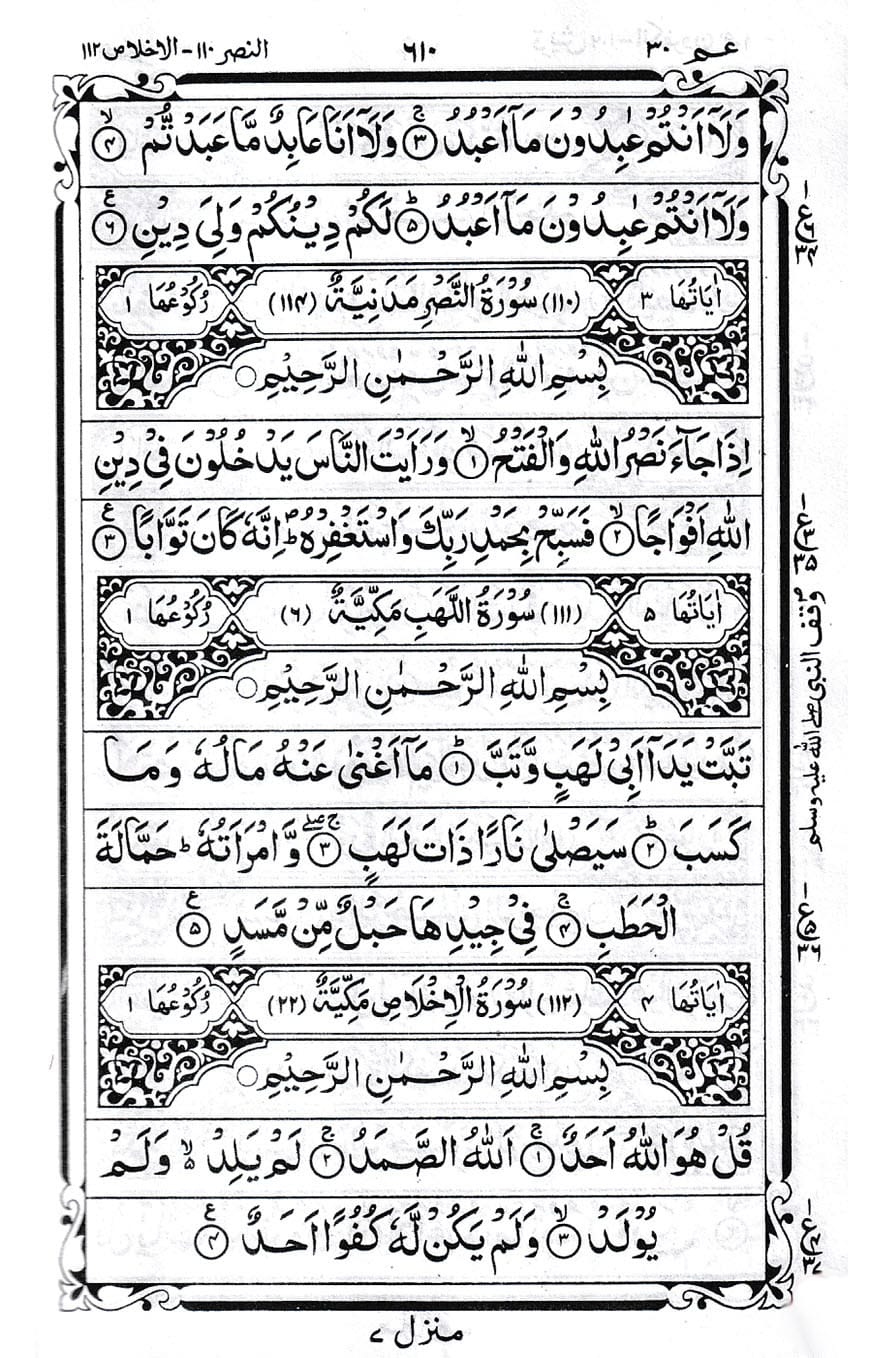 عـم ٣٠ ٦١٠ النصر ١١٠ - الاخلاص ١١٢
وَلَاۤ اَنْتُمْ عٰبِدُوْنَ مَاۤ اَعْبُدُ ۚ﴿۳﴾ وَلَاۤ اَنَا عَابِدٌ مَّا عَبَدْتُّمْ ۙ﴿۴﴾
وَلَاۤ اَنْتُمْ عٰبِدُوْنَ مَاۤ اَعْبُدُ ؕ﴿۵﴾ لَكُمْ دِيْنُكُمْ وَلِيَ دِيْنِ ﴿۶﴾ع
اٰيَاتُهَا ٣ (١١٠) سُوْرَةُ النَّصْرِ مَدَنِيَّةٌ (١١۴) رُكُوْعُهَا ١
بِسْمِ اللهِ الرَّحْمٰنِ الرَّحِيْمِ ○
اِذَا جَآءَ نَصْرُ اللهِ وَالْفَتْحُ ۙ﴿۱﴾ وَرَاَيْتَ النَّاسَ يَدْخُلُوْنَ فِيْ دِيْنِ
اللهِ اَفْوَاجًا ۙ﴿۲﴾ فَسَبِّحْ بِحَمْدِ رَبِّكَ وَاسْتَغْفِرْهُ ؕ اِنَّهٗ كَانَ تَوَّابًا ﴿۳﴾ع
اٰيَاتُهَا ۵ (١١١) سُوْرَةُ اللَّهَبِ مَكِّيَّةٌ (٦) رُكُوْعُهَا ١
بِسْمِ اللهِ الرَّحْمٰنِ الرَّحِيْمِ ○
تَبَّتْ يَدَاۤ اَبِيْ لَهَبٍ وَّتَبَّ ؕ﴿۱﴾ مَاۤ اَغْنٰى عَنْهُ مَالُهٗ وَمَا
كَسَبَ ؕ﴿۲﴾ سَيَصْلٰى نَارًا ذَاتَ لَهَبٍ ۚۖ﴿۳﴾ وَّامْرَاَتُهٗ ؕ حَمَّالَةَ
الْحَطَبِ ۚ﴿۴﴾ فِيْ جِيْدِهَا حَبْلٌ مِّنْ مَّسَدٍ ﴿۵﴾ع
اٰيَاتُهَا ۴ (١١٢) سُوْرَةُ الْاِخْلَاصِ مَكِّيَّةٌ (٢٢) رُكُوْعُهَا ١
بِسْمِ اللهِ الرَّحْمٰنِ الرَّحِيْمِ ○
قُلْ هُوَ اللهُ اَحَدٌ ۚ﴿۱﴾ اَللهُ الصَّمَدُ ۚ﴿۲﴾ لَمْ يَلِدْ ۙ۬ وَلَمْ
يُوْلَدْ ۙ﴿۳﴾ وَلَمْ يَكُنْ لَّهٗ كُفُوًا اَحَدٌ ﴿۴﴾ع
وقف النبی صلى الله عليه وسلم
منزل ٧